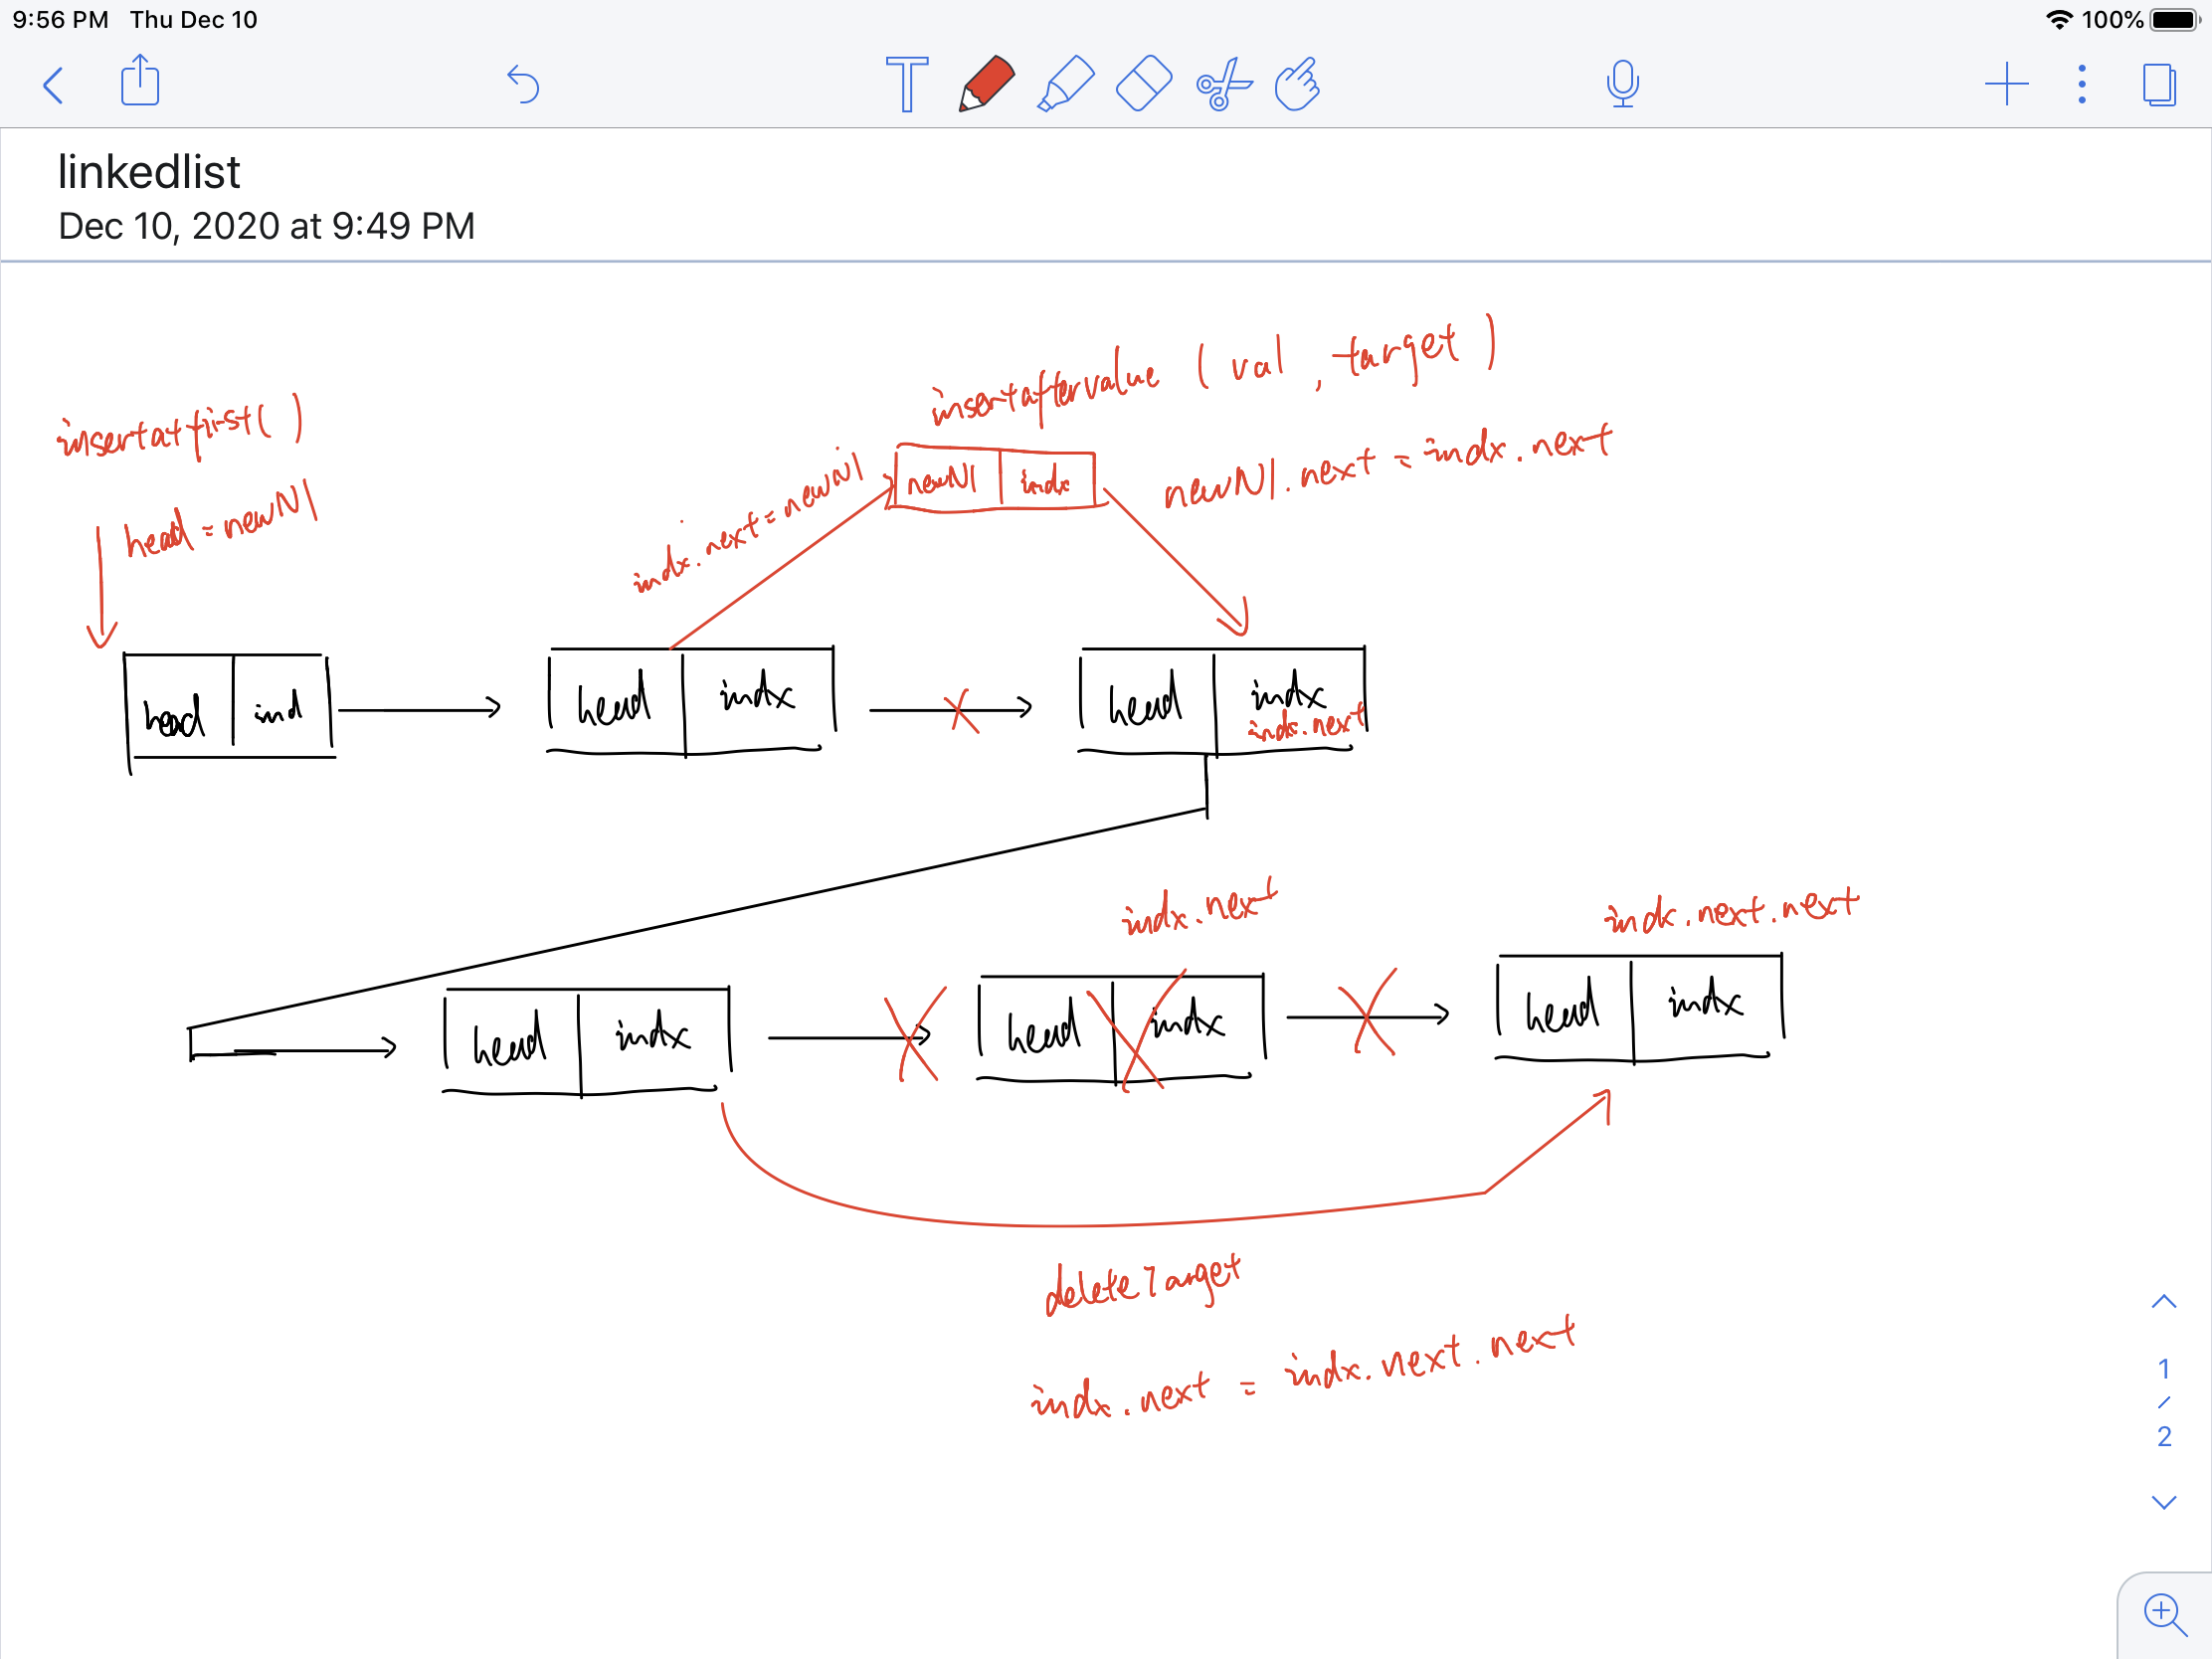 9:56 PM Thu Dec 10
100%
linkedlist
Dec 10, 2020 at 9:49 PM
insertaftervalue ( val , target )
insertatfirst( )
newNl.next = indx.next
indx.next = newNl
newNl indx
head = newNl
head ind
head indx
head indx
indx.next
indx.next
indx.next.next
head indx
head indx
head indx
deleteTarget
indx.next = indx.next.next
1
/
2